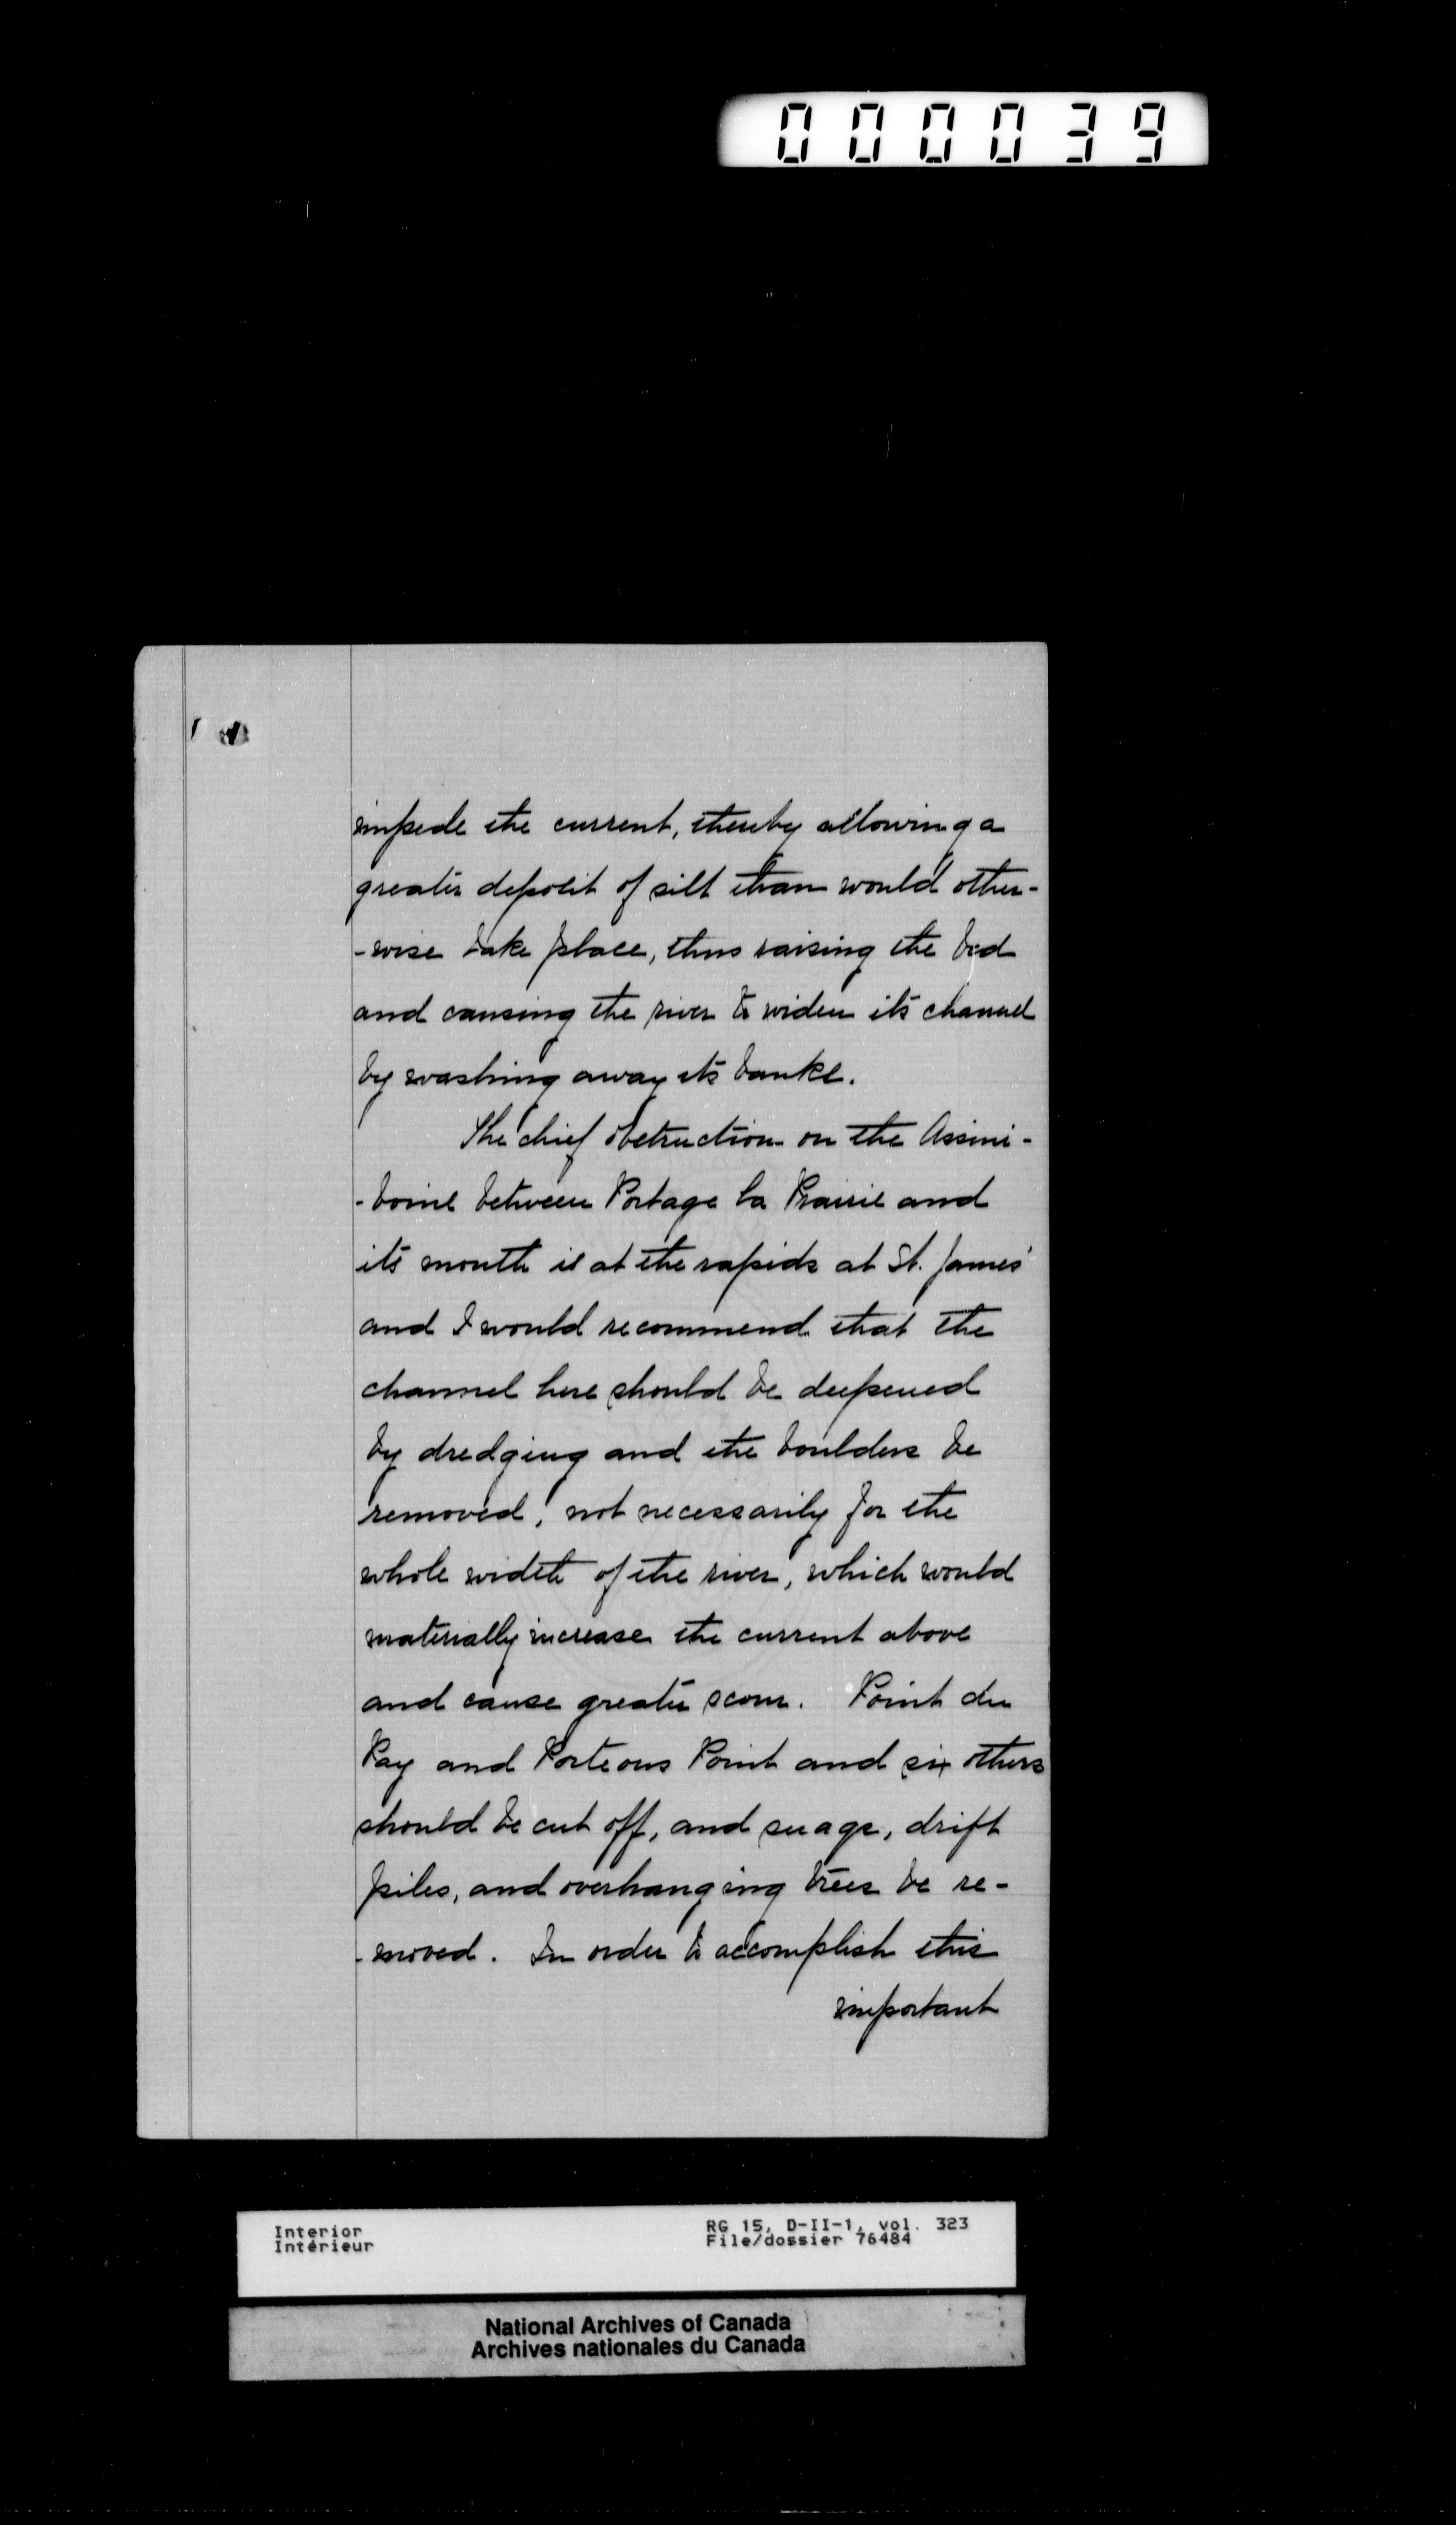 000039
impede the current, thereby allowing a
greater deposit of silt than would other-
-wise take place, thus raising the bed
and causing the river to widen its channel
by washing away its banks.
The chief obstruction on the Assini-
-boine between Portage la Prairie and
its mouth is at the rapids at St. James'
and I would recommend that the
channel here should be deepened
by dredging and the boulders be
removed, not necessarily for the
whole width of the river, which would
materially increase the current above
and cause greater scour. Point du
Pay and Porteous Point and six others
should be cut off, and snags, drift
piles, and overhanging trees be re-
-moved. In order to accomplish this
important
Interior
Intérieur
RG 15, D-II-1, vol. 323
File/dossier 76484
National Archives of Canada
Archives nationales du Canada